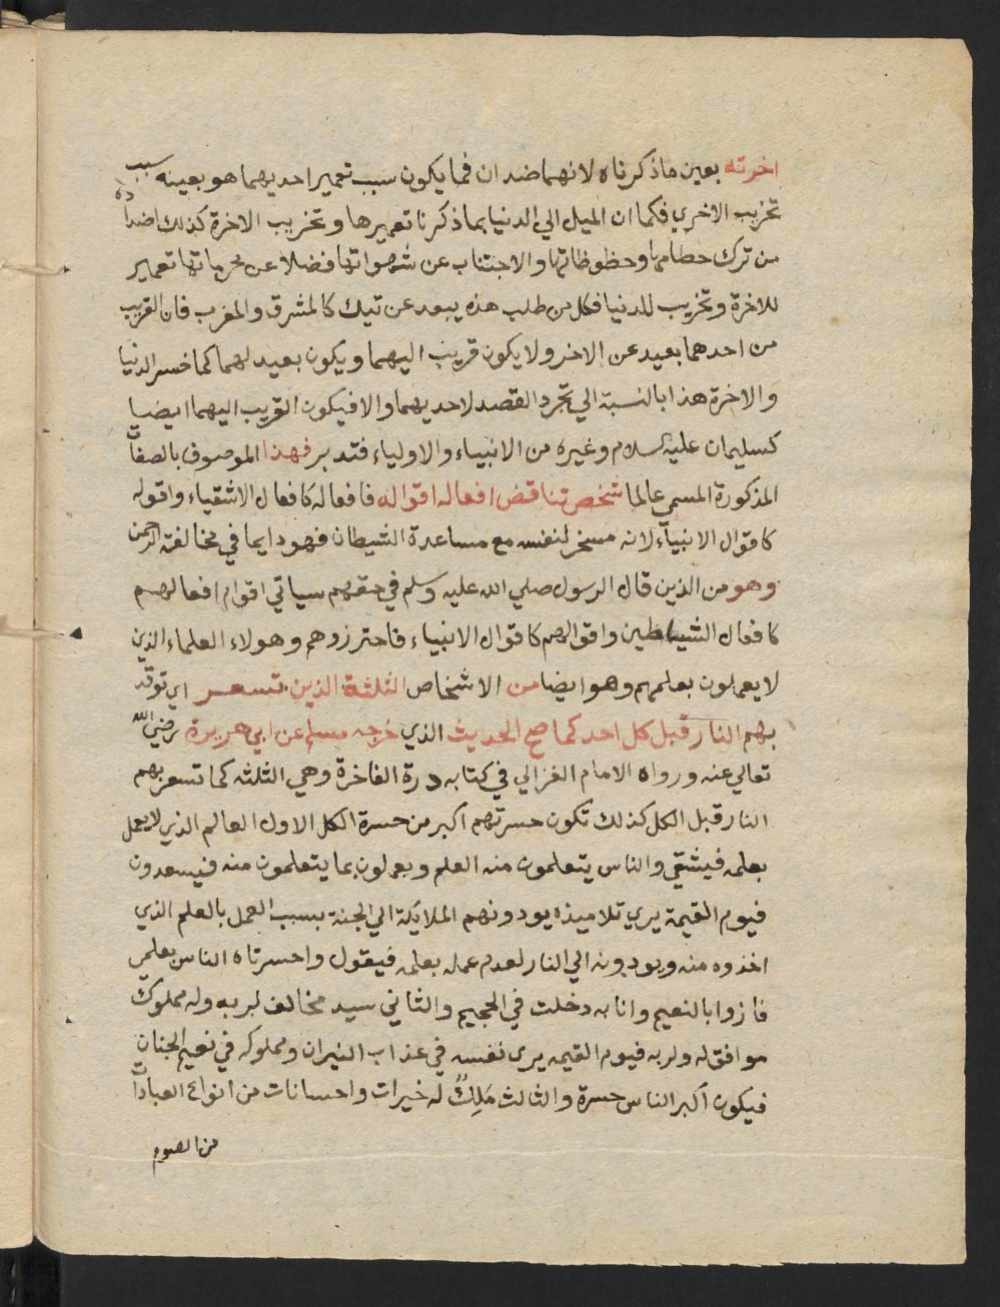 اخرته بعين ماذكرناه لانهما ضدان فما يكون سبب تعمير احديهما هو بعينه سبب
تخريب الاخري فكما ان الميل الي الدنيا بما ذكرنا تعميرها وتخريب الاخرة كذلك اضداده
من ترك حطامها وحظوظاتها والاجتناب عن شهواتها فضلا عن محرماتها تعمير
للاخرة وتخريب للدنيا فكل من طلب هذه يبعد عن تيك كالمشرق والمغرب فان القريب
من احدهما بعيد عن الاخر ولا يكون قريب اليهما ويكون بعيد لهما كما خسر الدنيا
والاخرة هذا بالنسبة الي تجرد القصد لاحديهما والا فيكون القريب اليهما ايضيا
كسليمان عليه السلام وغيره من الانبياء والاولياء فتدبر فهذا الموصوف بالصفات
المذكورة المسمي عالما شخص تناقض افعاله اقواله فافعاله كافعال الاشقياء واقوله
كاقوال الانبياء لانه مسخر لنفسه مع مساعدة الشيطان فهو دايما في مخالفة الرحمن
وهو من الذين قال الرسول صلي الله عليه وسلم في حقهم سياتي اقوام افعالهم
كافعال الشياطين واقوالهم كاقوال الانبياء فاحترزوهم وهولاء العلماء الذين
لا يعملون بعلمهم وهو ايضا من الاشخاص الثلثة الذين تسعر اي توقد
بهم النار قبل كل احد كما صح الحديث الذي خرجه مسلم عن ابي هريرة رضي الله
تعالي عنه ورواه الامام الغزالي في كتابه درة الفاخرة وهي الثلثه كما تسعر بهم
النار قبل الكل كذلك تكون حسرتهم اكبر من حسرة الكل الاول العالم الذي لا يعمل
بعلمه فيشقي والناس يتعلمون منه العلم ويعملون بما يتعلمون منه فيسعدون
فيوم القيمة يري تلاميذه يودونهم الملايكة الي الجنة بسبب العمل بالعلم الذي
اخذوه منه ويودونه الي النار لعدم عمله بعلمه فيقول واحسرتاه الناس بعلمي
فازوا بالنعيم وانا به دخلت في الجحيم والثاني سيد مخالف لربه وله مملوك
موافق له ولربه فيوم القيمه يري نفسه في عذاب النيران ومملوكه في نعيم الجنان
فيكون اكبر الناس حسرة والثالث مَلِكٌ له خيرات واحسانات من انواع العبادات
من الصوم